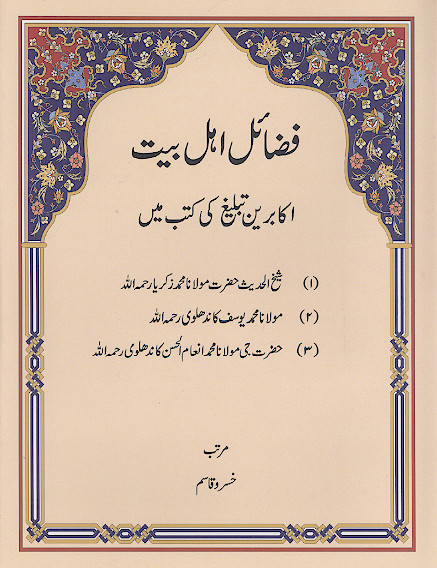 فضائل اہل بیت
اکابرین تبلیغ کی کتب میں
(۱) شیخ الحدیث حضرت مولانا محمد زکریا رحمہ اللہ
(۲) مولانا محمد یوسف کاندھلوی رحمہ اللہ
(۳) حضرت جی مولانا محمد انعام الحسن کاندھلوی رحمہ اللہ
مرتب
خسرو قاسم